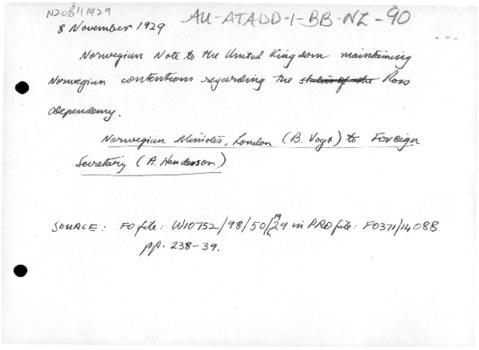 NZ08111929
AU-ATADD-1-BB-NZ-90
8 November 1929
Norwegian Note to the United Kingdom maintaining
Norwegian contentions regarding the status of the Ross
dependency.
Norwegian Minister, London (B. Vogt) to Foreign
Secretary (A. Henderson)
SOURCE: FO file: W10752/98/50/1929 in PRO file: FO371/14088
pp. 238-39.